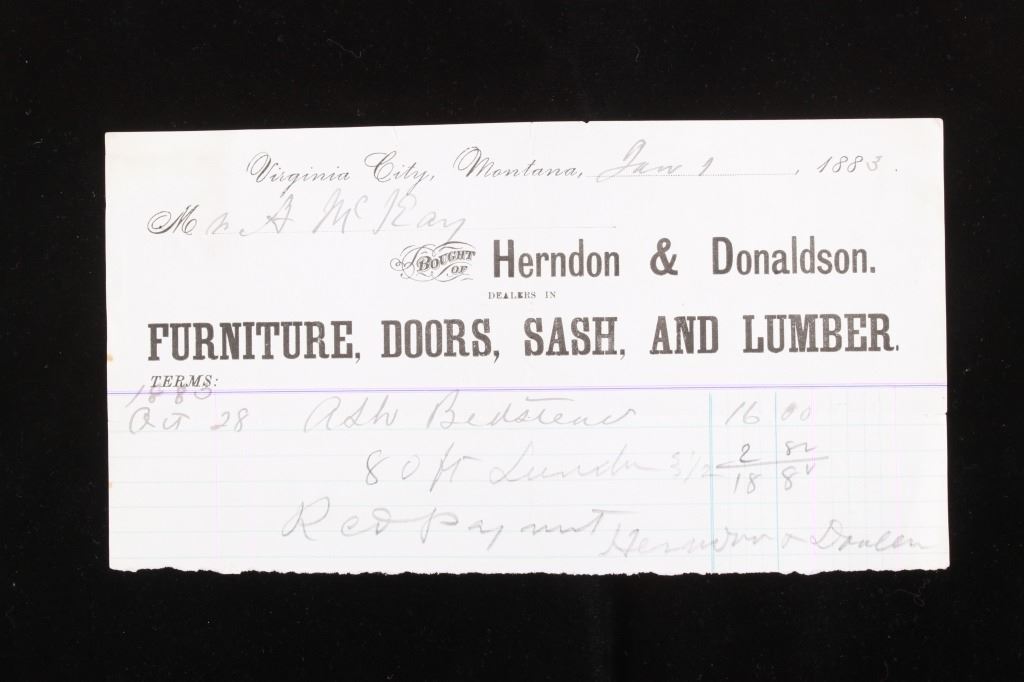 Virginia City, Montana, Jan 1, 1883.
Mr A McKay
BOUGHT OF Herndon & Donaldson.
DEALERS IN
FURNITURE, DOORS, SASH, AND LUMBER.
TERMS:
1883
Oct 28 Ash Bedstead 16 00
80 ft 3 1/2 2 82
18 82
Recd payment Herndon &